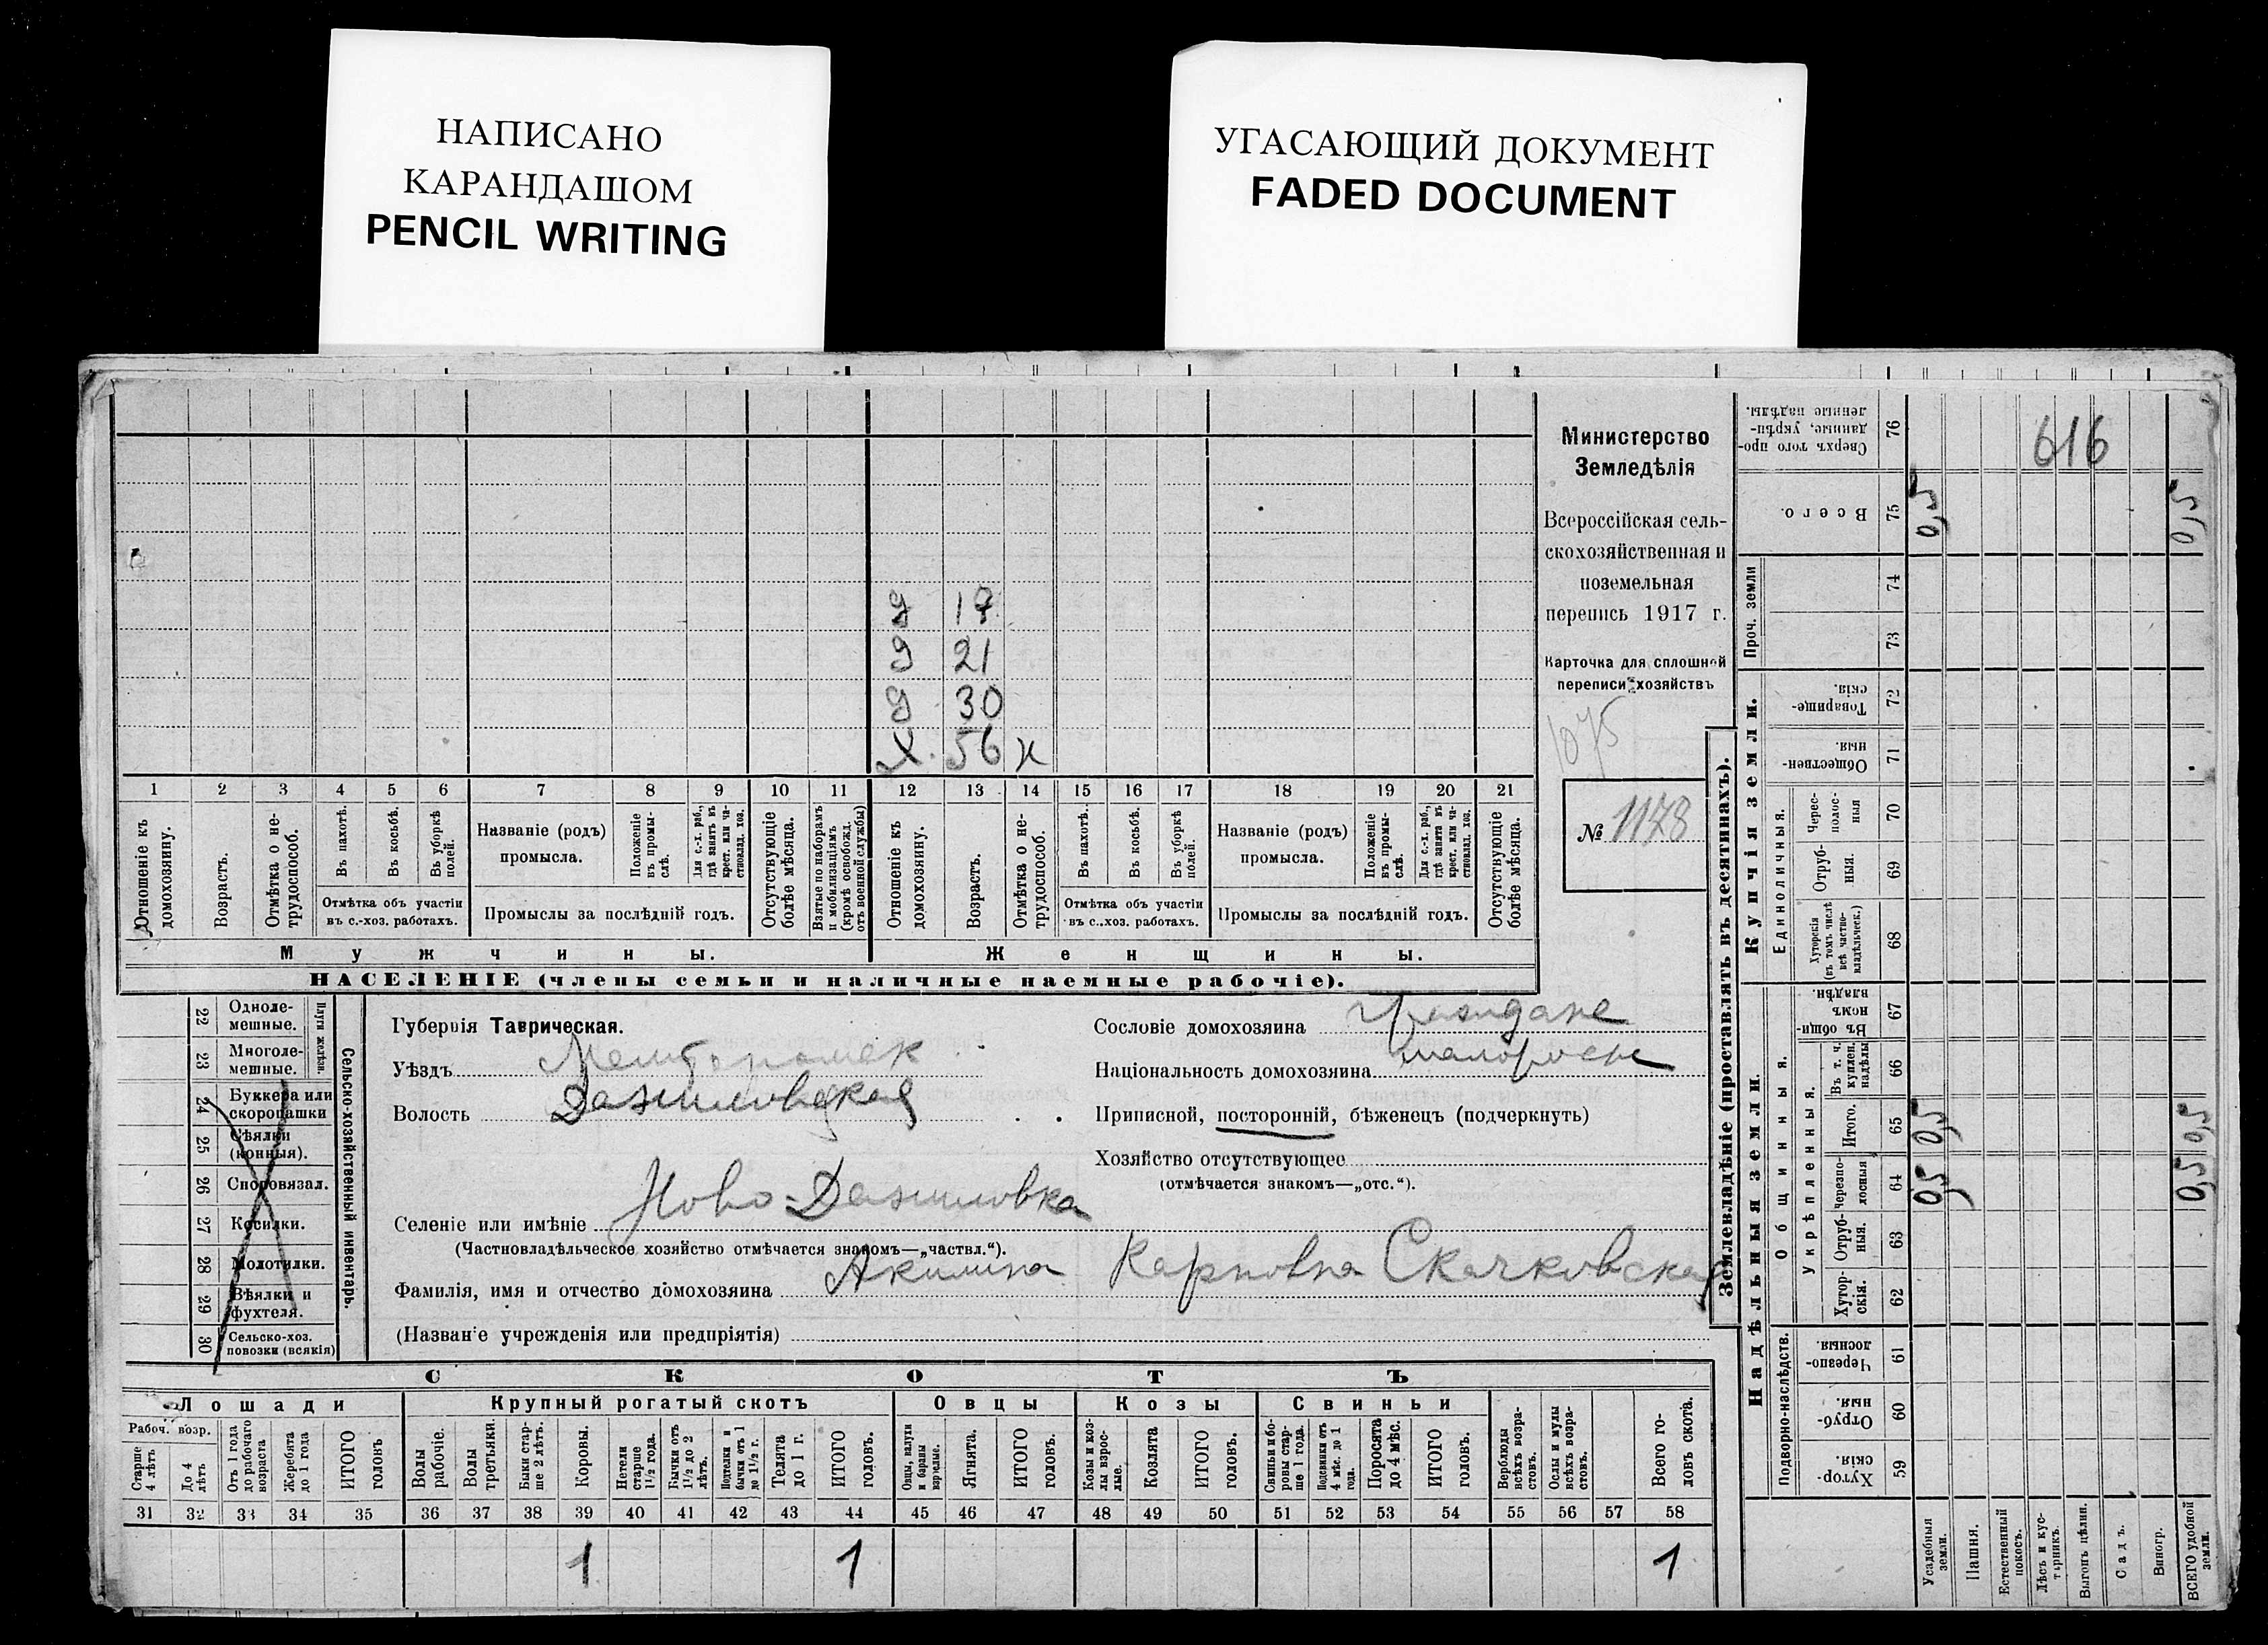 НАПИСАНО
КАРАНДАШОМ
PENCIL WRITING
УГАСАЮЩИЙ ДОКУМЕНТ
FADED DOCUMENT
Министерство
Земледѣлія
Всероссійская сель-
скохозяйственная и
поземельная
перепись 1917 г.
Карточка для сплошной
переписи хозяйствъ
1075
№ 1178
616
д 17
д 21
д 30
х 56 н
1 2 3 4 5 6 7 8 9 10 11 12 13 14 15 16 17 18 19 20 21
Отношеніе къ домохозяину.
Возрастъ.
Отмѣтка о не-трудоспособ.
Въ пахотѣ.
Въ косьбѣ.
Въ уборкѣ полей.
Отмѣтка объ участіи
въ с.-хоз. работахъ.
Названіе (родъ)
промысла.
Положеніе въ промы-слѣ.
Для с.-х. раб., гдѣ занятъ въ крест. или ча-стновлад. хоз.
Промыслы за послѣдній годъ.
Отсутствующіе болѣе мѣсяца.
Взятые по наборамъ и мобилизаціямъ (кромѣ освобожд. отъ военной службы)
Отношеніе къ домохозяину.
Возрастъ.
Отмѣтка о не-трудоспособ.
Въ пахотѣ.
Въ косьбѣ.
Въ уборкѣ полей.
Отмѣтка объ участіи
въ с.-хоз. работахъ.
Названіе (родъ)
промысла.
Положеніе въ промы-слѣ.
Для с.-х. раб., гдѣ занята въ крест. или ча-стновлад. хоз.
Промыслы за послѣдній годъ.
Отсутствующіе болѣе мѣсяца.
Мужчины.
Женщины.
НАСЕЛЕНІЕ (члены семьи и наличные наемные рабочіе).
Сельско-хозяйственный инвентарь.
Плуги желѣзн.
22 Одноле-мешные.
23 Многоле-мешные.
24 Буккера или скоропашки
25 Сѣялки (конныя).
26 Сноповязал.
27 Косилки.
28 Молотилки.
29 Вѣялки и фухтеля.
30 Сельско-хоз. повозки (всякія)
Губернія Таврическая.
Уѣздъ
Волость
Селеніе или имѣніе Ново-Даниловка
(Частновладѣльческое хозяйство отмѣчается знакомъ—„частвл.“).
Фамилія, имя и отчество домохозяина Акилина Карповна Скачковская
(Названіе учрежденія или предпріятія)
Сословіе домохозяина граждане
Національность домохозяина малороссы
Приписной, посторонній, бѣженец (подчеркнуть)
Хозяйство отсутствующее
(отмѣчается знакомъ—„отс.“).
СКОТЪ
Лошади
Крупный рогатый скотъ
Овцы
Козы
Свиньи
Рабоч. возр.
Старше 4 лѣтъ
До 4 лѣтъ
Отъ 1 года до рабочаго возраста
Жеребята до 1 года
ИТОГО головъ
Волы рабочіе.
Волы третьяки.
Быки стар-ше 2 лѣтъ.
Коровы.
Нетели старше 1½ года.
Бычки отъ 1½ до 2 лѣтъ.
бычки отъ 1 до 1½ г.
Телята до 1 г.
ИТОГО головъ.
Овцы, валухи и бараны взрослые.
Ягнята.
ИТОГО головъ.
Козы и коз-лы взрос-лые.
Козлята
ИТОГО головъ.
Свиньи и бо-ровы стар-ше 1 года.
Подсвинки отъ 4 мѣс. до 1 года.
Поросята до 4 мѣс.
ИТОГО головъ.
Верблюды всѣхъ возра-стовъ.
Ослы и мулы всѣхъ возра-стовъ.
Всего го-ловъ скота.
31 32 33 34 35 36 37 38 39 40 41 42 43 44 45 46 47 48 49 50 51 52 53 54 55 56 57 58
1 1 1
Землевладѣніе (проставлять въ десятинахъ).
Купчія земли.
Надѣльныя земли.
Проч. земли
Единоличныя.
Общинныя.
Укрѣпленныя.
Подворно-наслѣдств.
Сверхъ того про-данные, укрѣп-ленные надѣлы. 76
Всего. 75 0,5 0,5
74
73
Товарище-скія. 72
Обществен-ныя. 71
Черес-полос-ныя 70
Отруб-ныя. 69
Хуторскія (въ томъ числѣ всѣ частно-владѣльческ.) 68
Въ общи-номъ владѣн. 67
Въ т. ч. куплен. надѣлы 66
Итого. 65 0,5 0,5
черезпо-лосныя 64 0,5 0,5
Отруб-ныя. 63
Хутор-скія. 62
Черезпо-лосныя 61
Отруб-ныя. 60
Хутор-скія. 59
Усадебныя земли.
Пашня.
Естественный покосъ.
Лѣсъ и кус-тарникъ.
Выгонъ цѣлин.
Садъ.
Виногр.
ВСЕГО удобной земли.